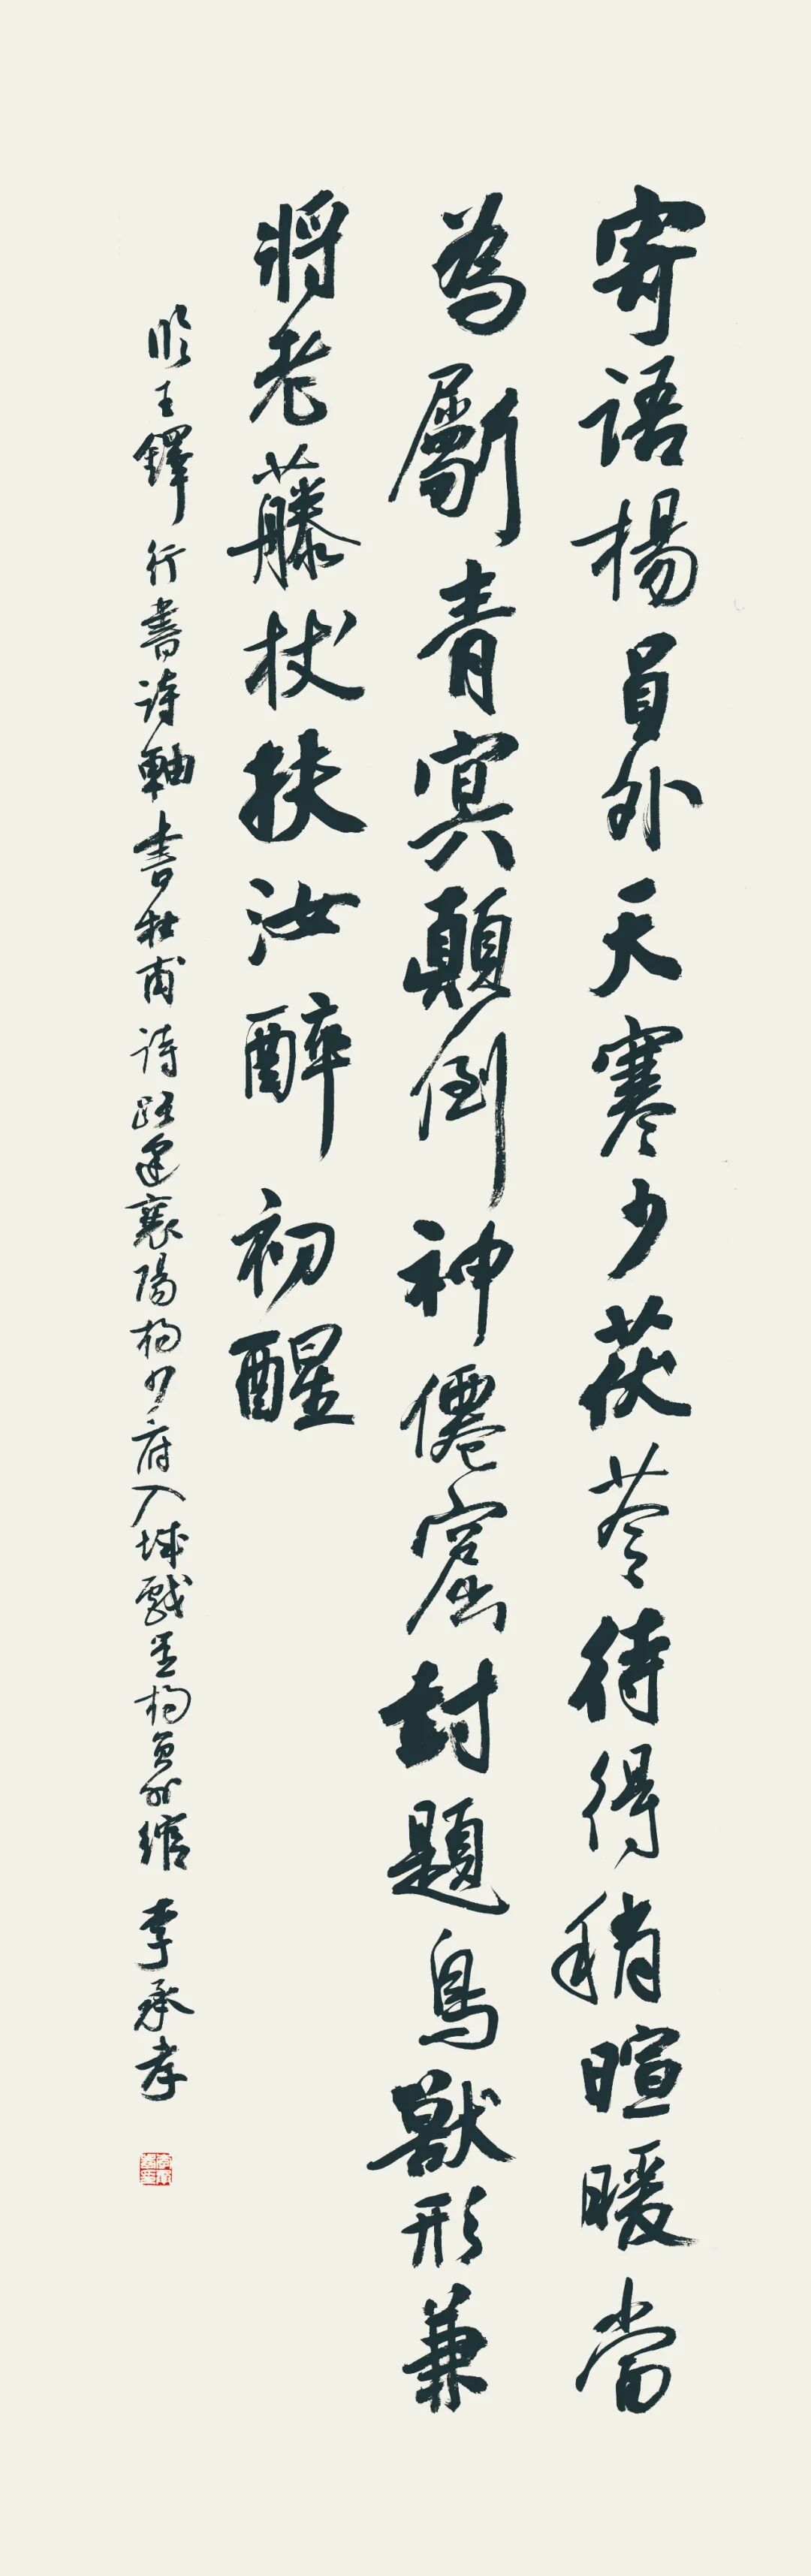 寄語楊員外天寒少茯苓待得稍暄暖當
為劚青冥顛倒神僊窟封題鳥獸形兼
將老藤杖扶汝醉初醒
臨王鐸行書詩軸書杜甫詩路逢襄陽楊少府入城戲呈楊員外綰 李承孝